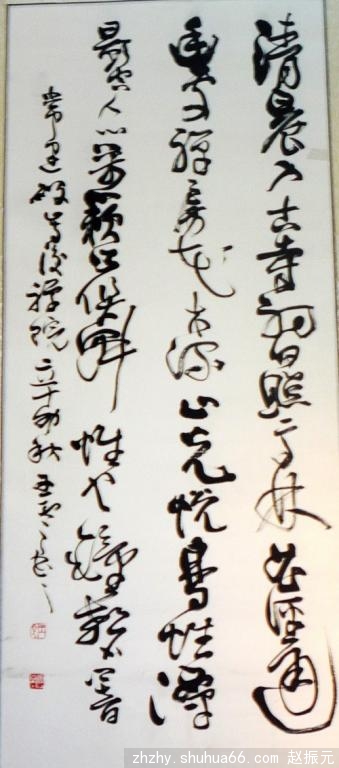 清晨入古寺初日照高林曲径通
幽处禅房花木深山光悦鸟性潭
影空人心万籁此俱寂惟鐘磬音
常建破山寺後禅院秋
zhzhy.shuhua66.com 赵振元